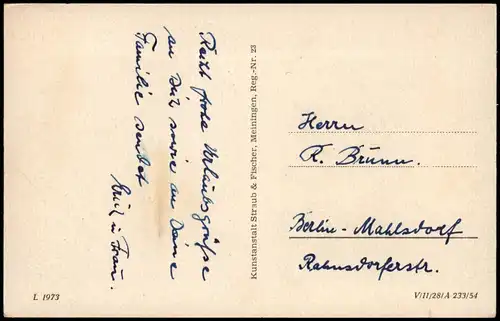 Recht frohe Urlaubsgrüße
an Dich sowie an Deine
Familie sendet
Erich u. Frau.
Kunstanstalt Straub & Fischer, Meiningen, Reg.-Nr. 23
Herrn
R. Brunn.
Berlin - Mahlsdorf
Rahnsdorferstr.
L 1973
V/11/28/A 233/54